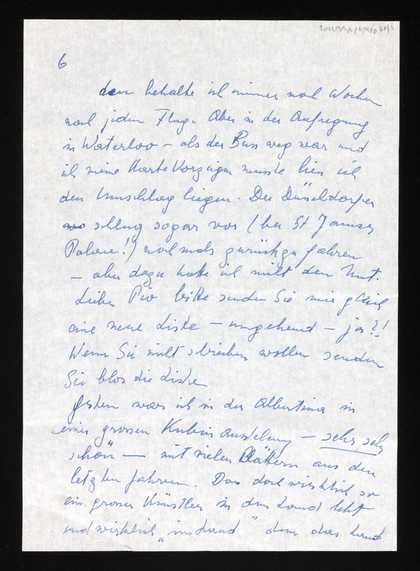 6
den behalte ich immer noch Wochen
nach jedem Flug. Aber in der Aufregung
in Waterloo – als der Bus weg war und
ich meine Karte vorzeigen musste liess ich
den Umschlag liegen. Die Düsseldorfer
schlug sogar vor (bei St James
Palace!) nochmals zurückzufahren
– aber dazu hatte ich nicht den Mut.
Lieber Pio bitte senden Sie mir gleich
eine neue Liste – umgehend – ja?!
Wenn Sie nicht schreiben wollen senden
Sie blos die Liste
Gestern war ich in der Albertina in
einer grossen Kubin Ausstellung – sehr sehr
schön – mit vielen Blättern aus den
letzten Jahren. Dass doch wirklich so
ein grosser Künstler in dem Land lebt
und wirklich "im Land" denn das Land